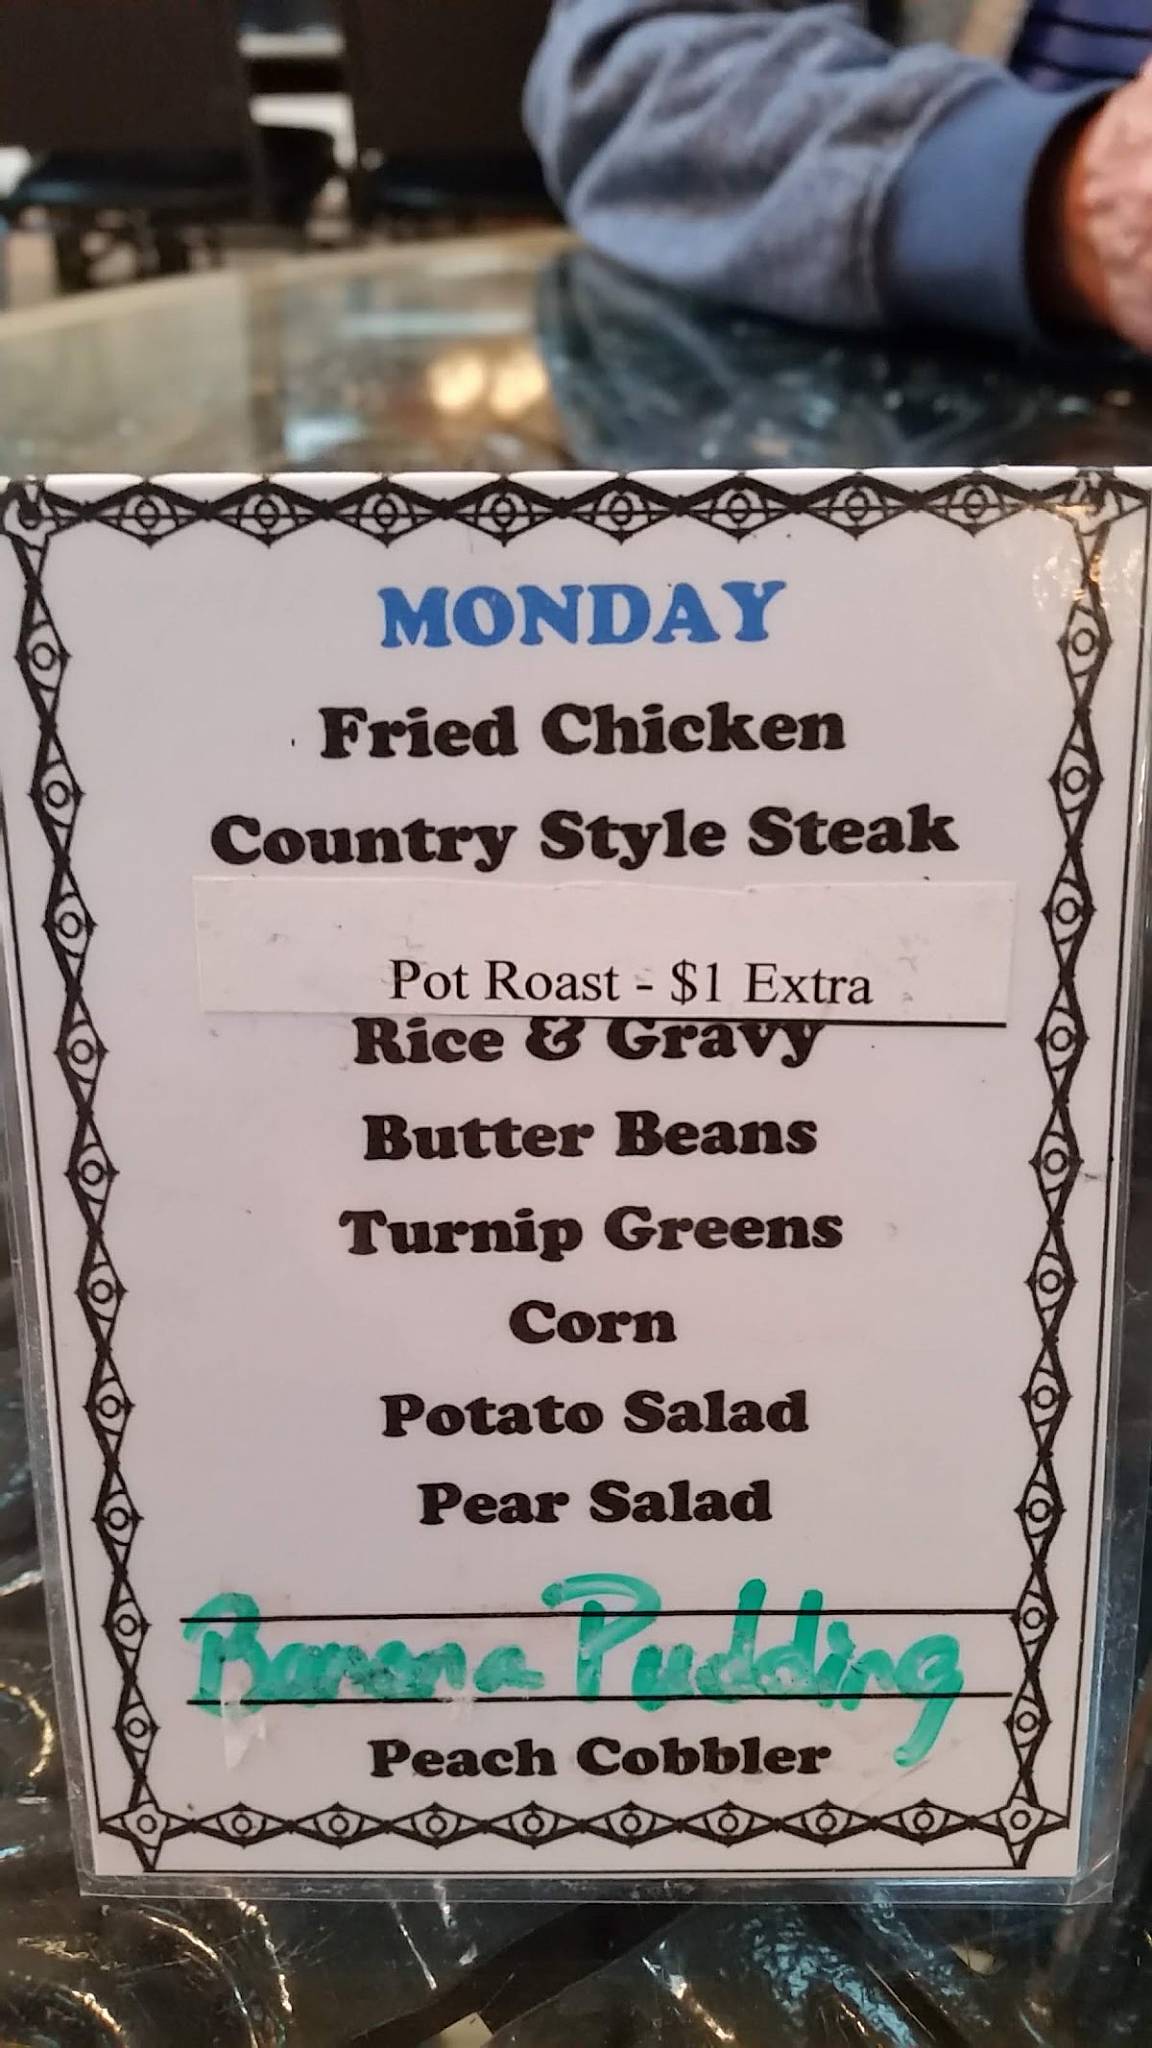 MONDAY
Fried Chicken
Country Style Steak
Pot Roast - $1 Extra
Rice & Gravy
Butter Beans
Turnip Greens
Corn
Potato Salad
Pear Salad
Banana Pudding
Peach Cobbler